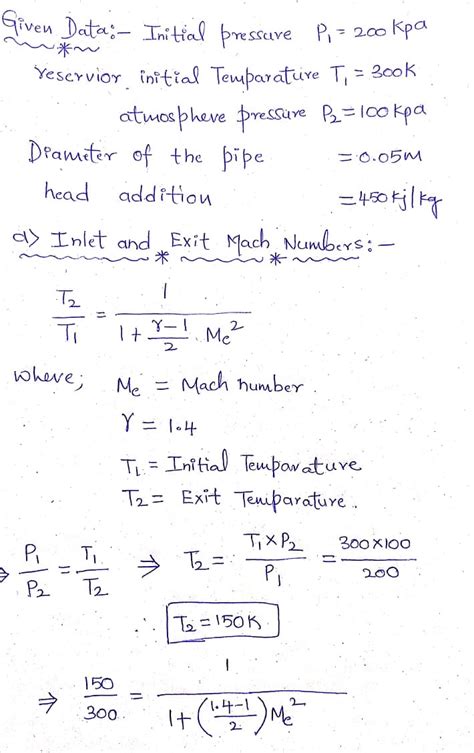 Given Data:- Initial pressure P₁ = 200 Kpa
reservior initial Temparature T₁ = 300K
atmosphere pressure P₂ = 100 Kpa
Diameter of the pipe = 0.05M
head addition = 450 Kj/kg
a) Inlet and Exit Mach Numbers:-
T₂/T₁ = 1/(1 + (γ-1)/2 · Me²)
where; Me = Mach number.
γ = 1.4
T₁ = Initial Temparature
T₂ = Exit Temparature.
⇒ P₁/P₂ = T₁/T₂ ⇒ T₂ = (T₁ × P₂)/P₁ = (300×100)/200
∴ T₂ = 150K
⇒ 150/300 = 1/(1 + ((1.4-1)/2) Me²)